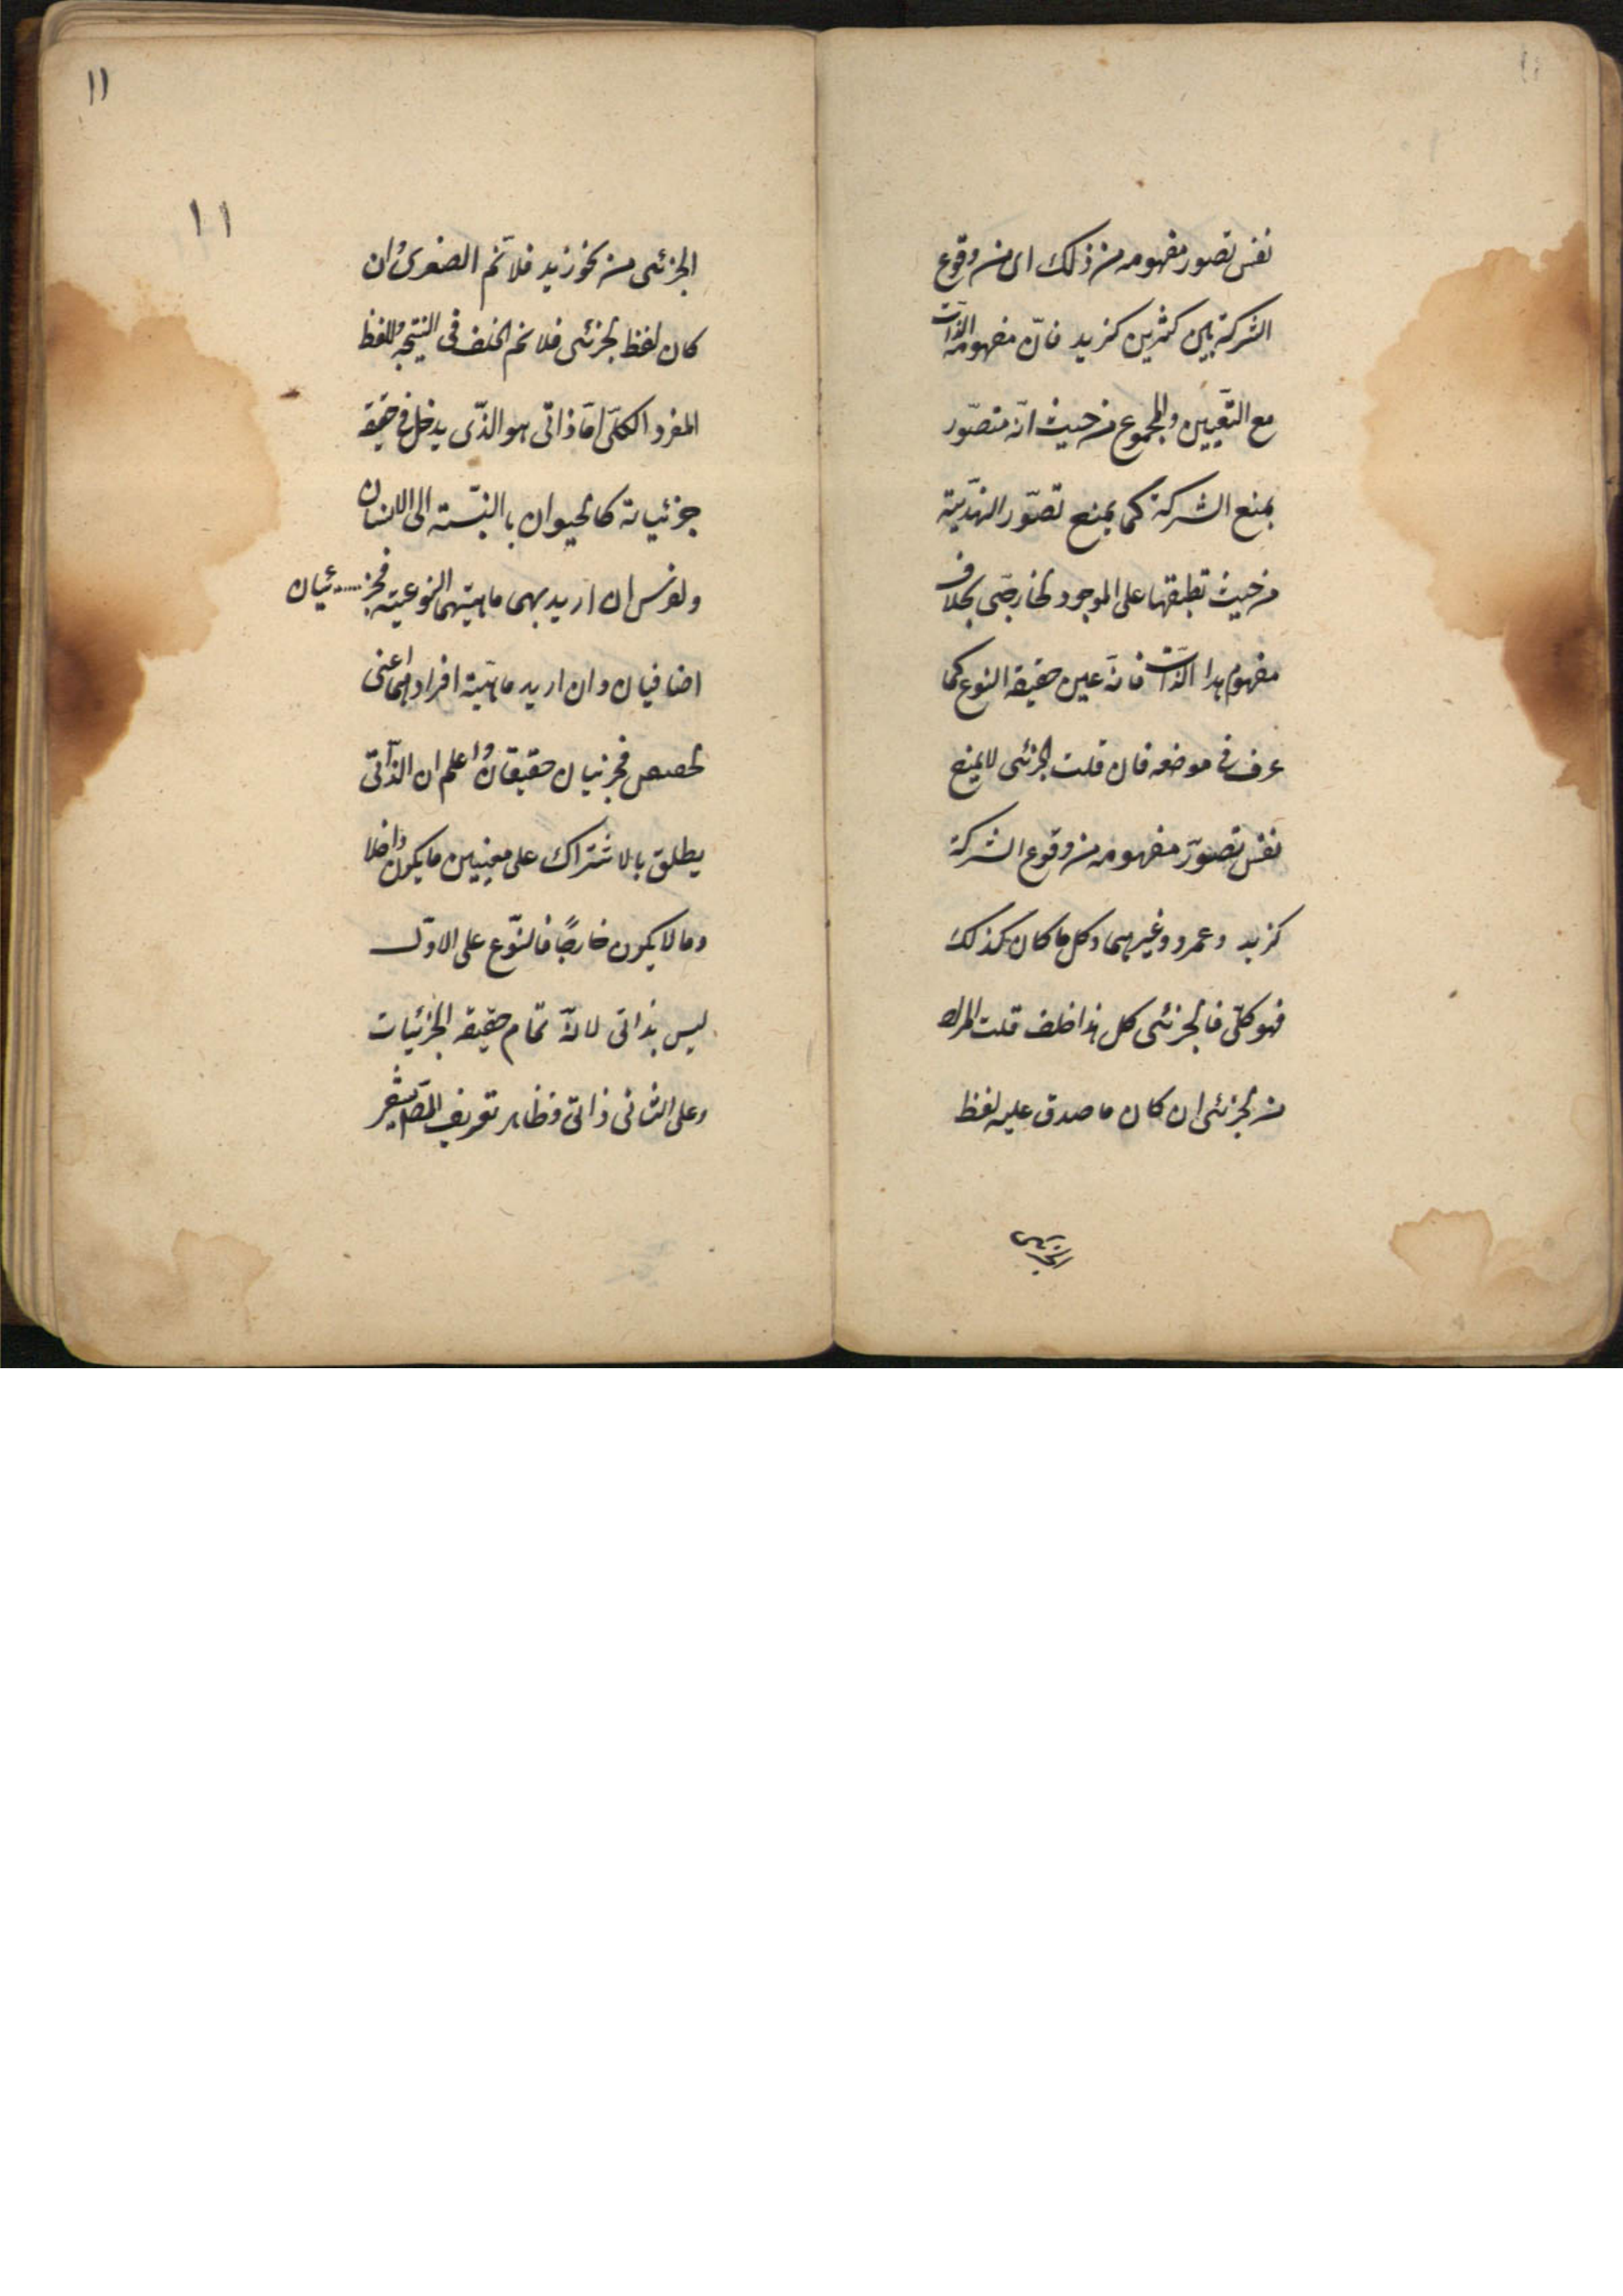 نفس تصور مفهومه من ذلك اى من وقوع
الشركة بين كثيرين كزيد فانّ مفهومه الذات
مع التعيين والمجموع من حيث انّه متصوّر
يمنع الشركة كما يمنع تصوّر الهذية
من حيث تطبقها على الموجود الخارجى بخلاف
مفهوم هذا الذات فانه عين حقيقة النوع كما
عرف فى موضعه فان قلت الجزئى لا يمنع
نفس تصوّر مفهومه من وقوع الشركة
كزيد وعمرو وغيرهما وكل ما كان كذلك
فهو كلّى فالجزئى كلى هذا خلف قلت المراد
من الجزئى ان كان ما صدق عليه لفظ
الجزئى
١١
١١
الجزئى من نحو زيد فلا نم الصغرى وان
كان لفظ الجزئى فلا نم الخلف فى النتيجة واللفظ
المفرد الكلّى امّا ذاتى هو الذّى يدخل فى حقيقة
جزئياته كالحيوان بالنسبة الى الانسان
والفرس ان اريد بهما ماهيتهما النوعيته فجزئيان
اضافيان وان اريد ماهيّة افرادهما اعنى
الحصص فجزئيان حقيقان واعلم ان الذّاتى
يطلق بالاشتراك على معنيين ما يكون داخلا
وما لا يكون خارجًا فالنّوع على الاوّل
ليس بذاتى لانّه تمام حقيقة الجزئيات
وعلى الثانى ذاتى وظاهر تعريف المصّ يشعر